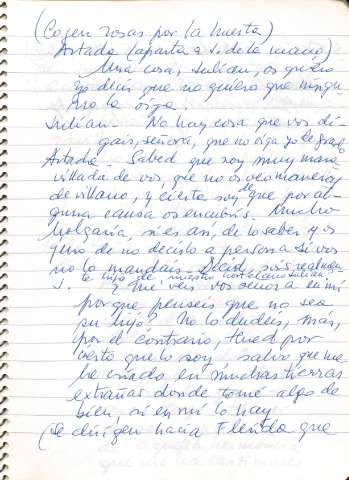 (Cogen rosas por la huerta)
Artada (aparta a S. de la mano)
Una cosa, Julian, os quiero
yo decir que no quiero que ningu-
no la oiga.
Julian - No hay cosa que vos di-
gais, señora, que no oiga yo de grado
Artada - Sabed que soy muy mara-
villada de vos, que no os veo maneras
de villano, y cierta soy de que por al-
guna causa os encubris. Mucho
holgaria, si es así, de lo saber y os
juro de no decirlo a persona si vos
no lo mandais. Decid, sois realmen-
te hijo de nuestro hortelano Julian,
J. - ? Qué veis vos señora en mi
por que penseis que no sea
su hijo? No lo dudeis, mas,
por el contrario, tened por
cierto que lo soy salvo que me
he criado en muchas tierras
extrañas donde tomé algo de
bien, si en mi lo hay
(Se dirigen hacia Flerida que